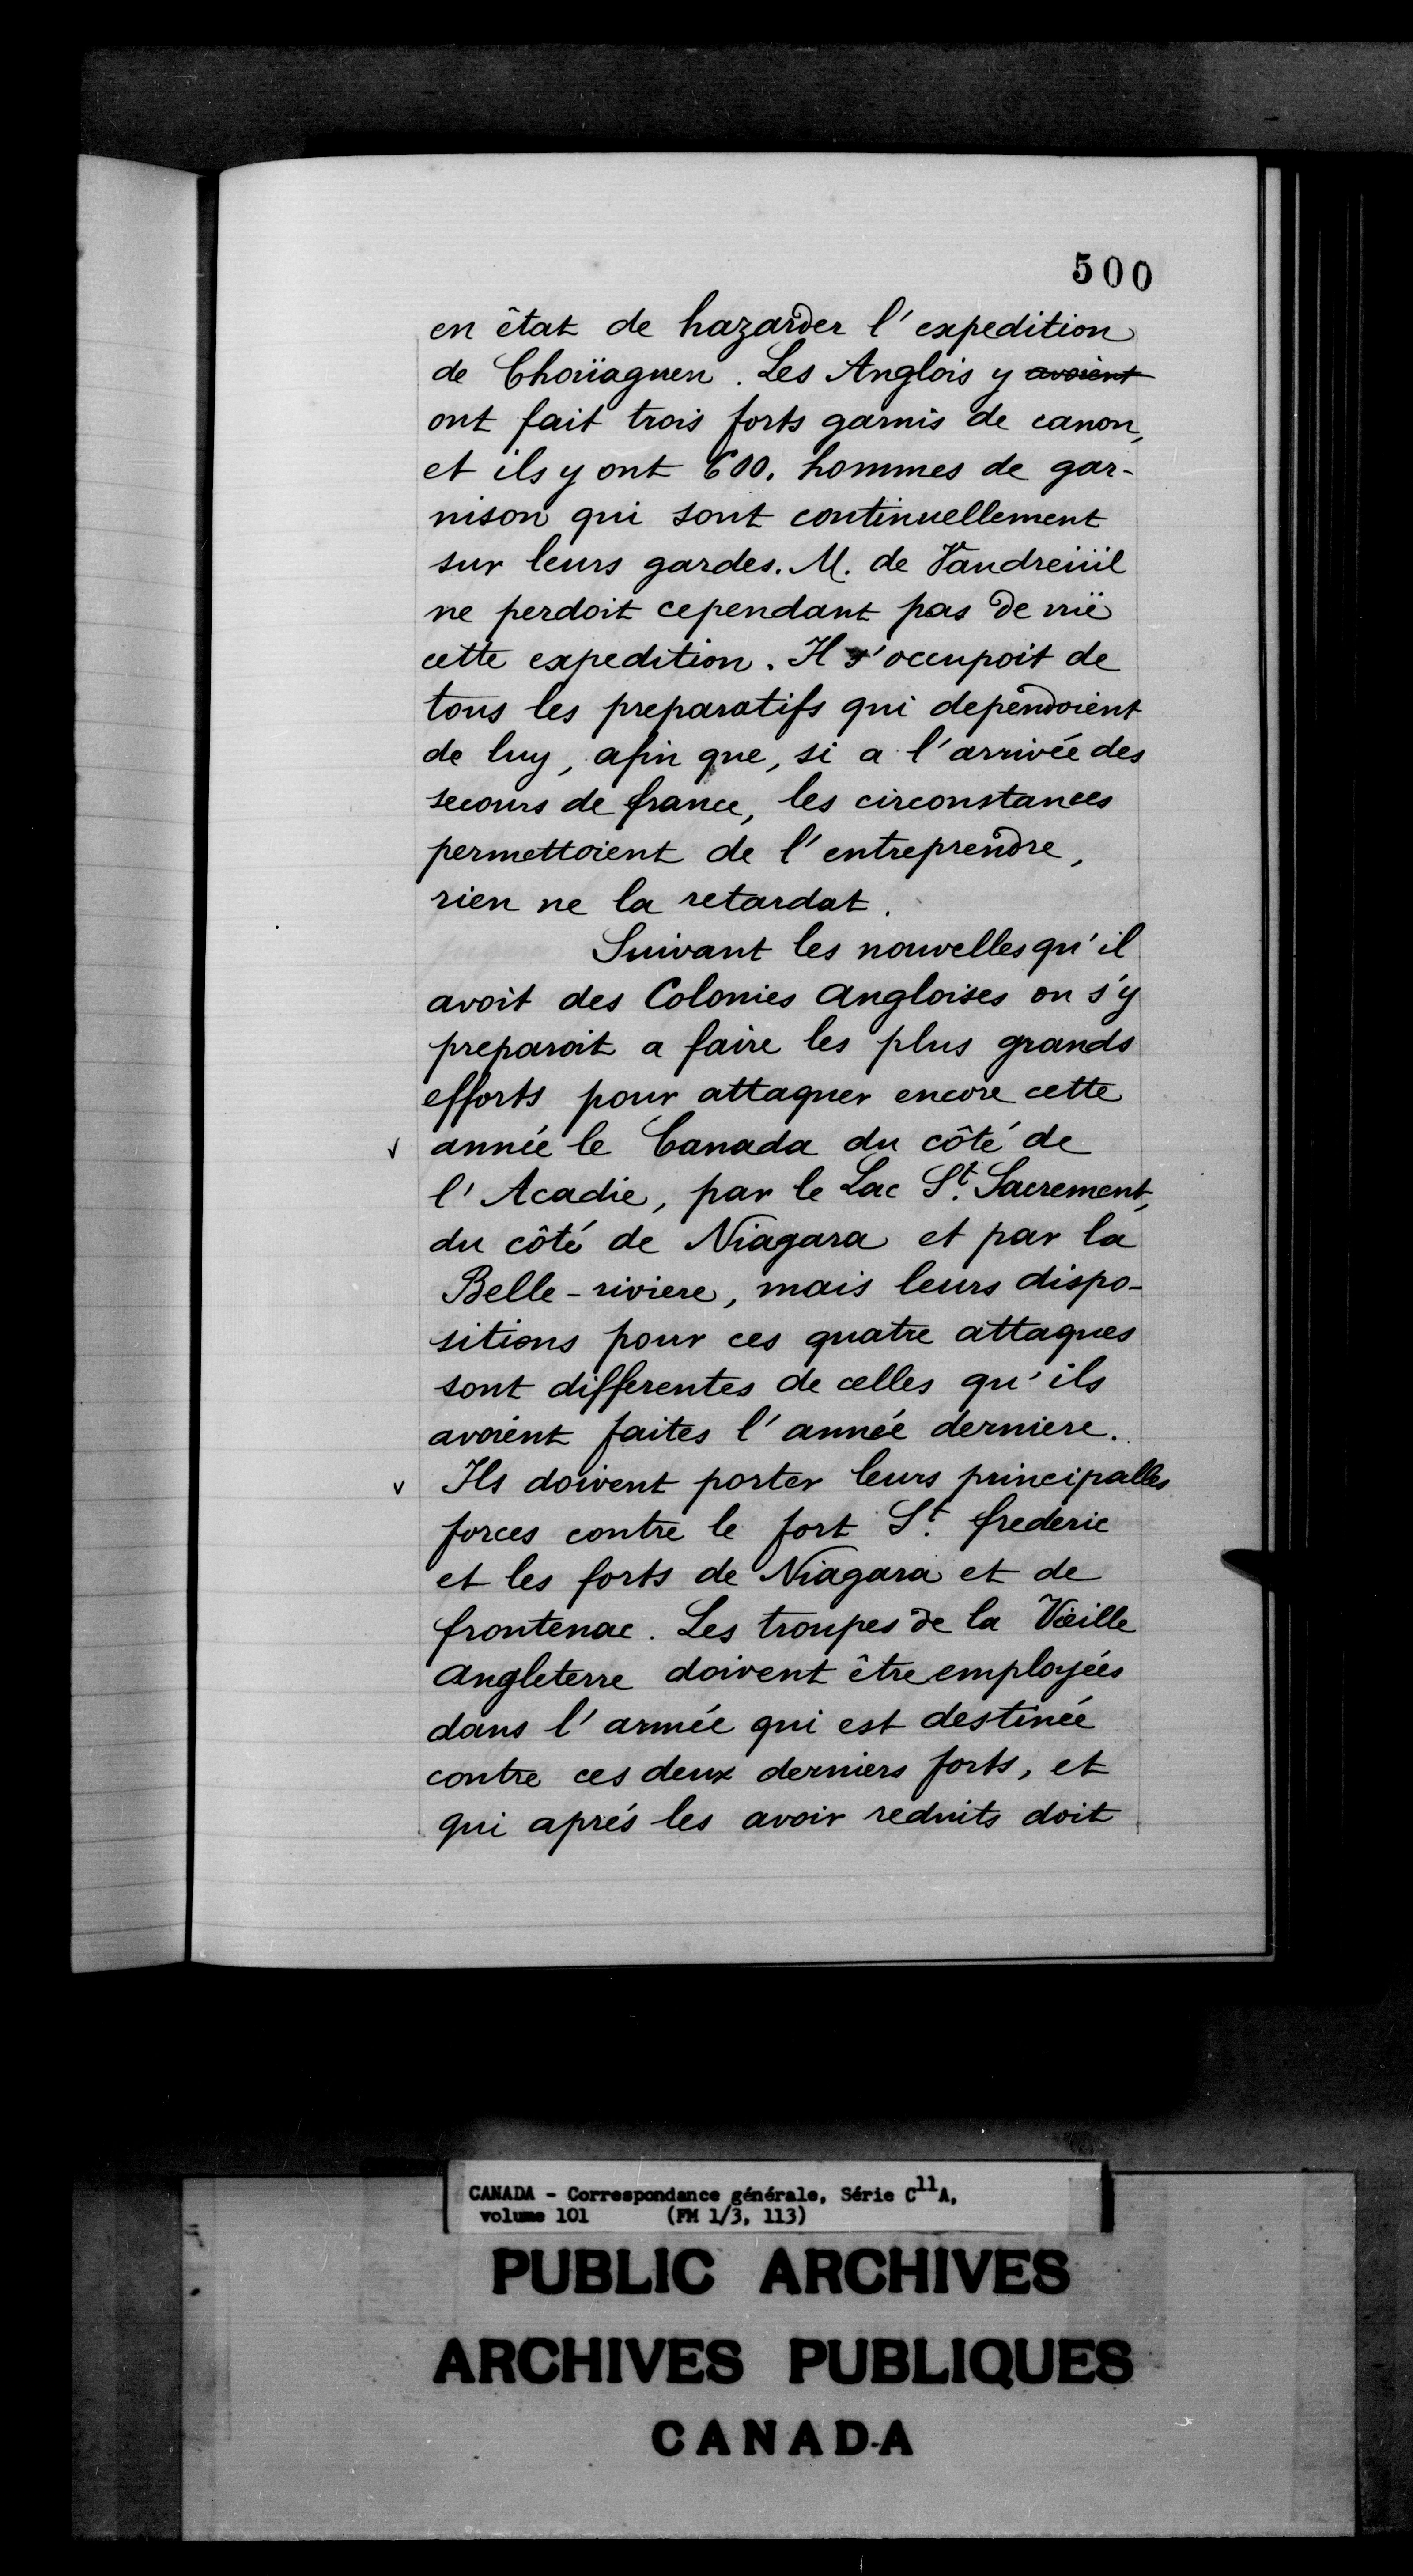 500
en êtat de hazarder l'expedition
de Choüaguen. Les Anglois y avoient
ont fait trois forts garnis de canon,
et ils y ont 600. hommes de gar-
nison qui sont continuellement
sur leurs gardes. M. de Vaudreüil
ne perdoit cependant pas de vuë
cette expedition. Il s'occupoit de
tous les preparatifs qui dependoient
de luy, afin que, si a l'arrivée des
secours de france, les circonstances
permettoient de l'entreprendre,
rien ne la retardat.
Suivant les nouvelles qu'il
avoit des Colonies Angloises on s'y
preparoit a faire les plus grands
efforts pour attaquer encore cette
√ année le Canada du côté de
l'Acadie, par le Lac St. Sacrement,
du côté de Niagara et par la
Belle-riviere, mais leurs dispo-
sitions pour ces quatre attaques
sont differentes de celles qu'ils
avoient faites l'année derniere.
v Ils doivent porter leurs principalles
forces contre le fort St. frederic
et les forts de Niagara et de
frontenac. Les troupes de la Vieille
Angleterre doivent être employées
dans l'armée qui est destinée
contre ces deux derniers forts, et
qui aprés les avoir reduits doit
CANADA - Correspondance générale, Série C11A,
volume 101 (FM 1/3, 113)
PUBLIC ARCHIVES
ARCHIVES PUBLIQUES
CANADA